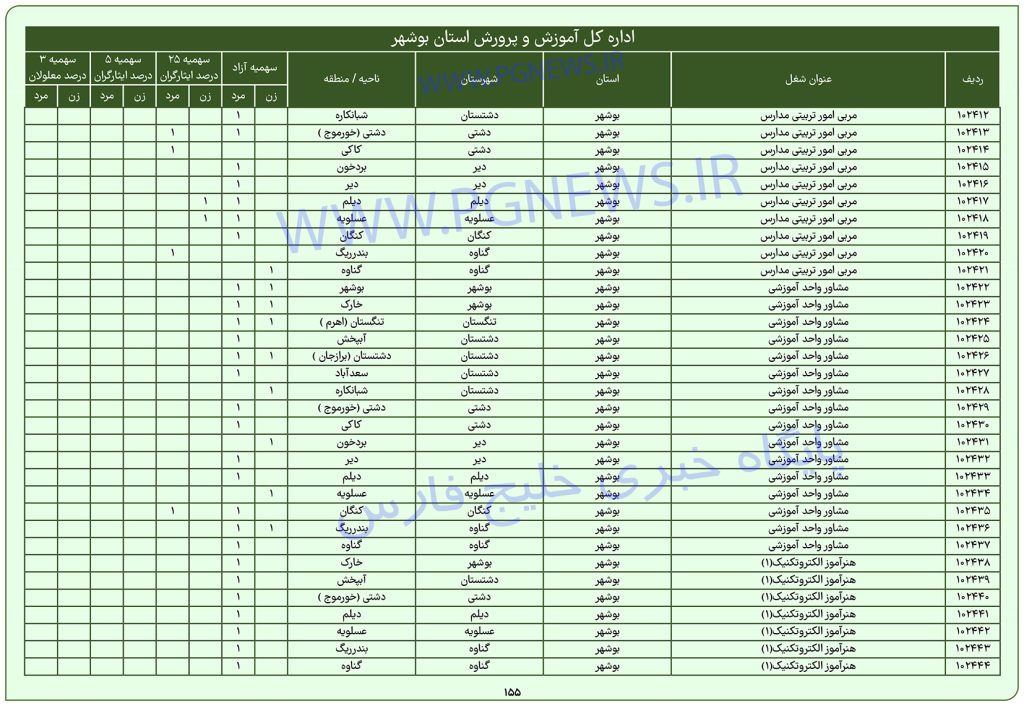 اداره کل آموزش و پرورش استان بوشهر
ردیف عنوان شغل استان شهرستان ناحیه / منطقه سهمیه آزاد سهمیه ۲۵ درصد ایثارگران سهمیه ۵ درصد ایثارگران سهمیه ۳ درصد معلولان
زن مرد زن مرد زن مرد زن مرد
۱۰۲۴۱۲ مربی امور تربیتی مدارس بوشهر دشتستان شبانکاره ۱
۱۰۲۴۱۳ مربی امور تربیتی مدارس بوشهر دشتی دشتی (خورموج ) ۱ ۱
۱۰۲۴۱۴ مربی امور تربیتی مدارس بوشهر دشتی کاکی ۱
۱۰۲۴۱۵ مربی امور تربیتی مدارس بوشهر دیر بردخون ۱
۱۰۲۴۱۶ مربی امور تربیتی مدارس بوشهر دیر دیر ۱
۱۰۲۴۱۷ مربی امور تربیتی مدارس بوشهر دیلم دیلم ۱ ۱
۱۰۲۴۱۸ مربی امور تربیتی مدارس بوشهر عسلویه عسلویه ۱ ۱
۱۰۲۴۱۹ مربی امور تربیتی مدارس بوشهر کنگان کنگان ۱
۱۰۲۴۲۰ مربی امور تربیتی مدارس بوشهر گناوه بندرریگ ۱
۱۰۲۴۲۱ مربی امور تربیتی مدارس بوشهر گناوه گناوه ۱
۱۰۲۴۲۲ مشاور واحد آموزشی بوشهر بوشهر بوشهر ۱ ۱
۱۰۲۴۲۳ مشاور واحد آموزشی بوشهر بوشهر خارک ۱ ۱
۱۰۲۴۲۴ مشاور واحد آموزشی بوشهر تنگستان تنگستان (اهرم ) ۱ ۱
۱۰۲۴۲۵ مشاور واحد آموزشی بوشهر دشتستان آبپخش ۱
۱۰۲۴۲۶ مشاور واحد آموزشی بوشهر دشتستان دشتستان (برازجان ) ۱ ۱
۱۰۲۴۲۷ مشاور واحد آموزشی بوشهر دشتستان سعدآباد ۱
۱۰۲۴۲۸ مشاور واحد آموزشی بوشهر دشتستان شبانکاره ۱
۱۰۲۴۲۹ مشاور واحد آموزشی بوشهر دشتی دشتی (خورموج ) ۱
۱۰۲۴۳۰ مشاور واحد آموزشی بوشهر دشتی کاکی ۱
۱۰۲۴۳۱ مشاور واحد آموزشی بوشهر دیر بردخون ۱
۱۰۲۴۳۲ مشاور واحد آموزشی بوشهر دیر دیر ۱
۱۰۲۴۳۳ مشاور واحد آموزشی بوشهر دیلم دیلم ۱
۱۰۲۴۳۴ مشاور واحد آموزشی بوشهر عسلویه عسلویه ۱
۱۰۲۴۳۵ مشاور واحد آموزشی بوشهر کنگان کنگان ۱ ۱
۱۰۲۴۳۶ مشاور واحد آموزشی بوشهر گناوه بندرریگ ۱ ۱
۱۰۲۴۳۷ مشاور واحد آموزشی بوشهر گناوه گناوه ۱
۱۰۲۴۳۸ هنرآموز الکتروتکنیک(۱) بوشهر بوشهر خارک ۱
۱۰۲۴۳۹ هنرآموز الکتروتکنیک(۱) بوشهر دشتستان آبپخش ۱
۱۰۲۴۴۰ هنرآموز الکتروتکنیک(۱) بوشهر دشتی دشتی (خورموج ) ۱
۱۰۲۴۴۱ هنرآموز الکتروتکنیک(۱) بوشهر دیلم دیلم ۱
۱۰۲۴۴۲ هنرآموز الکتروتکنیک(۱) بوشهر عسلویه عسلویه ۱
۱۰۲۴۴۳ هنرآموز الکتروتکنیک(۱) بوشهر گناوه بندرریگ ۱
۱۰۲۴۴۴ هنرآموز الکتروتکنیک(۱) بوشهر گناوه گناوه ۱
۱۵۵
WWW.PGNEWS.IR
WWW.PGNEWS.IR
پایگاه خبری خلیج فارس